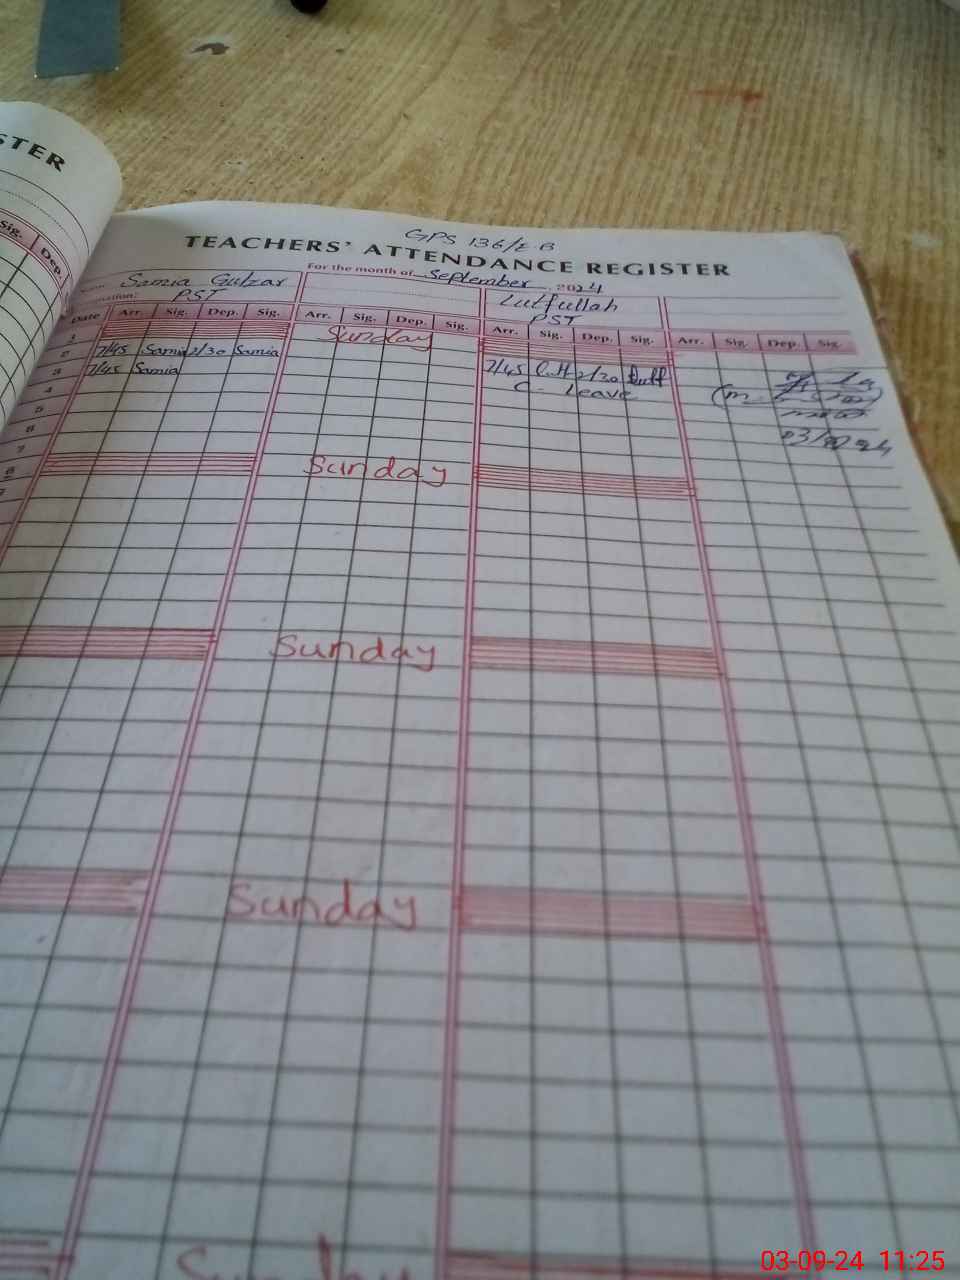 STER
Sig. Dep.
GPS 136/E.B
TEACHERS' ATTENDANCE REGISTER
For the month of September, 2024
Samia Gulzar Lutfullah
PST PST
Date Arr. Sig. Dep. Sig. Arr. Sig. Dep. Sig. Arr. Sig. Dep. Sig. Arr. Sig. Dep. Sig.
1 Sunday
2 7/45 Samia 2/30 Samia 7/45 Lutf 2/30 Lutf
3 7/45 Samia C - Leave
4
5
6
7
8 Sunday
Sunday
Sunday
Sunday
03-09-24 11:25